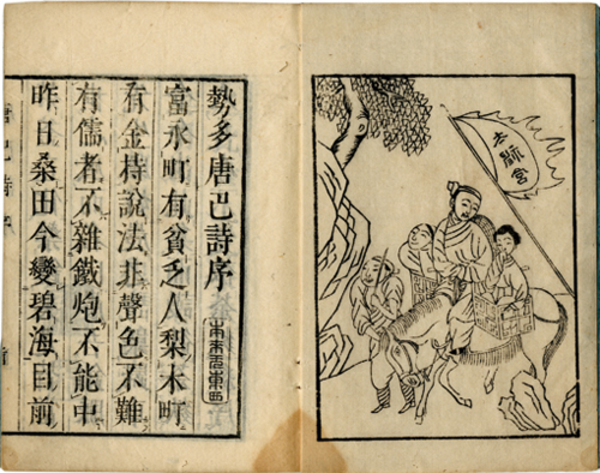 太神宮
勢多唐巴詩序
富永町有貧乏人梨木町
有金持說法非聲色不難
有儒者不雜鐵炮不能中
昨日桑田今變碧海目前